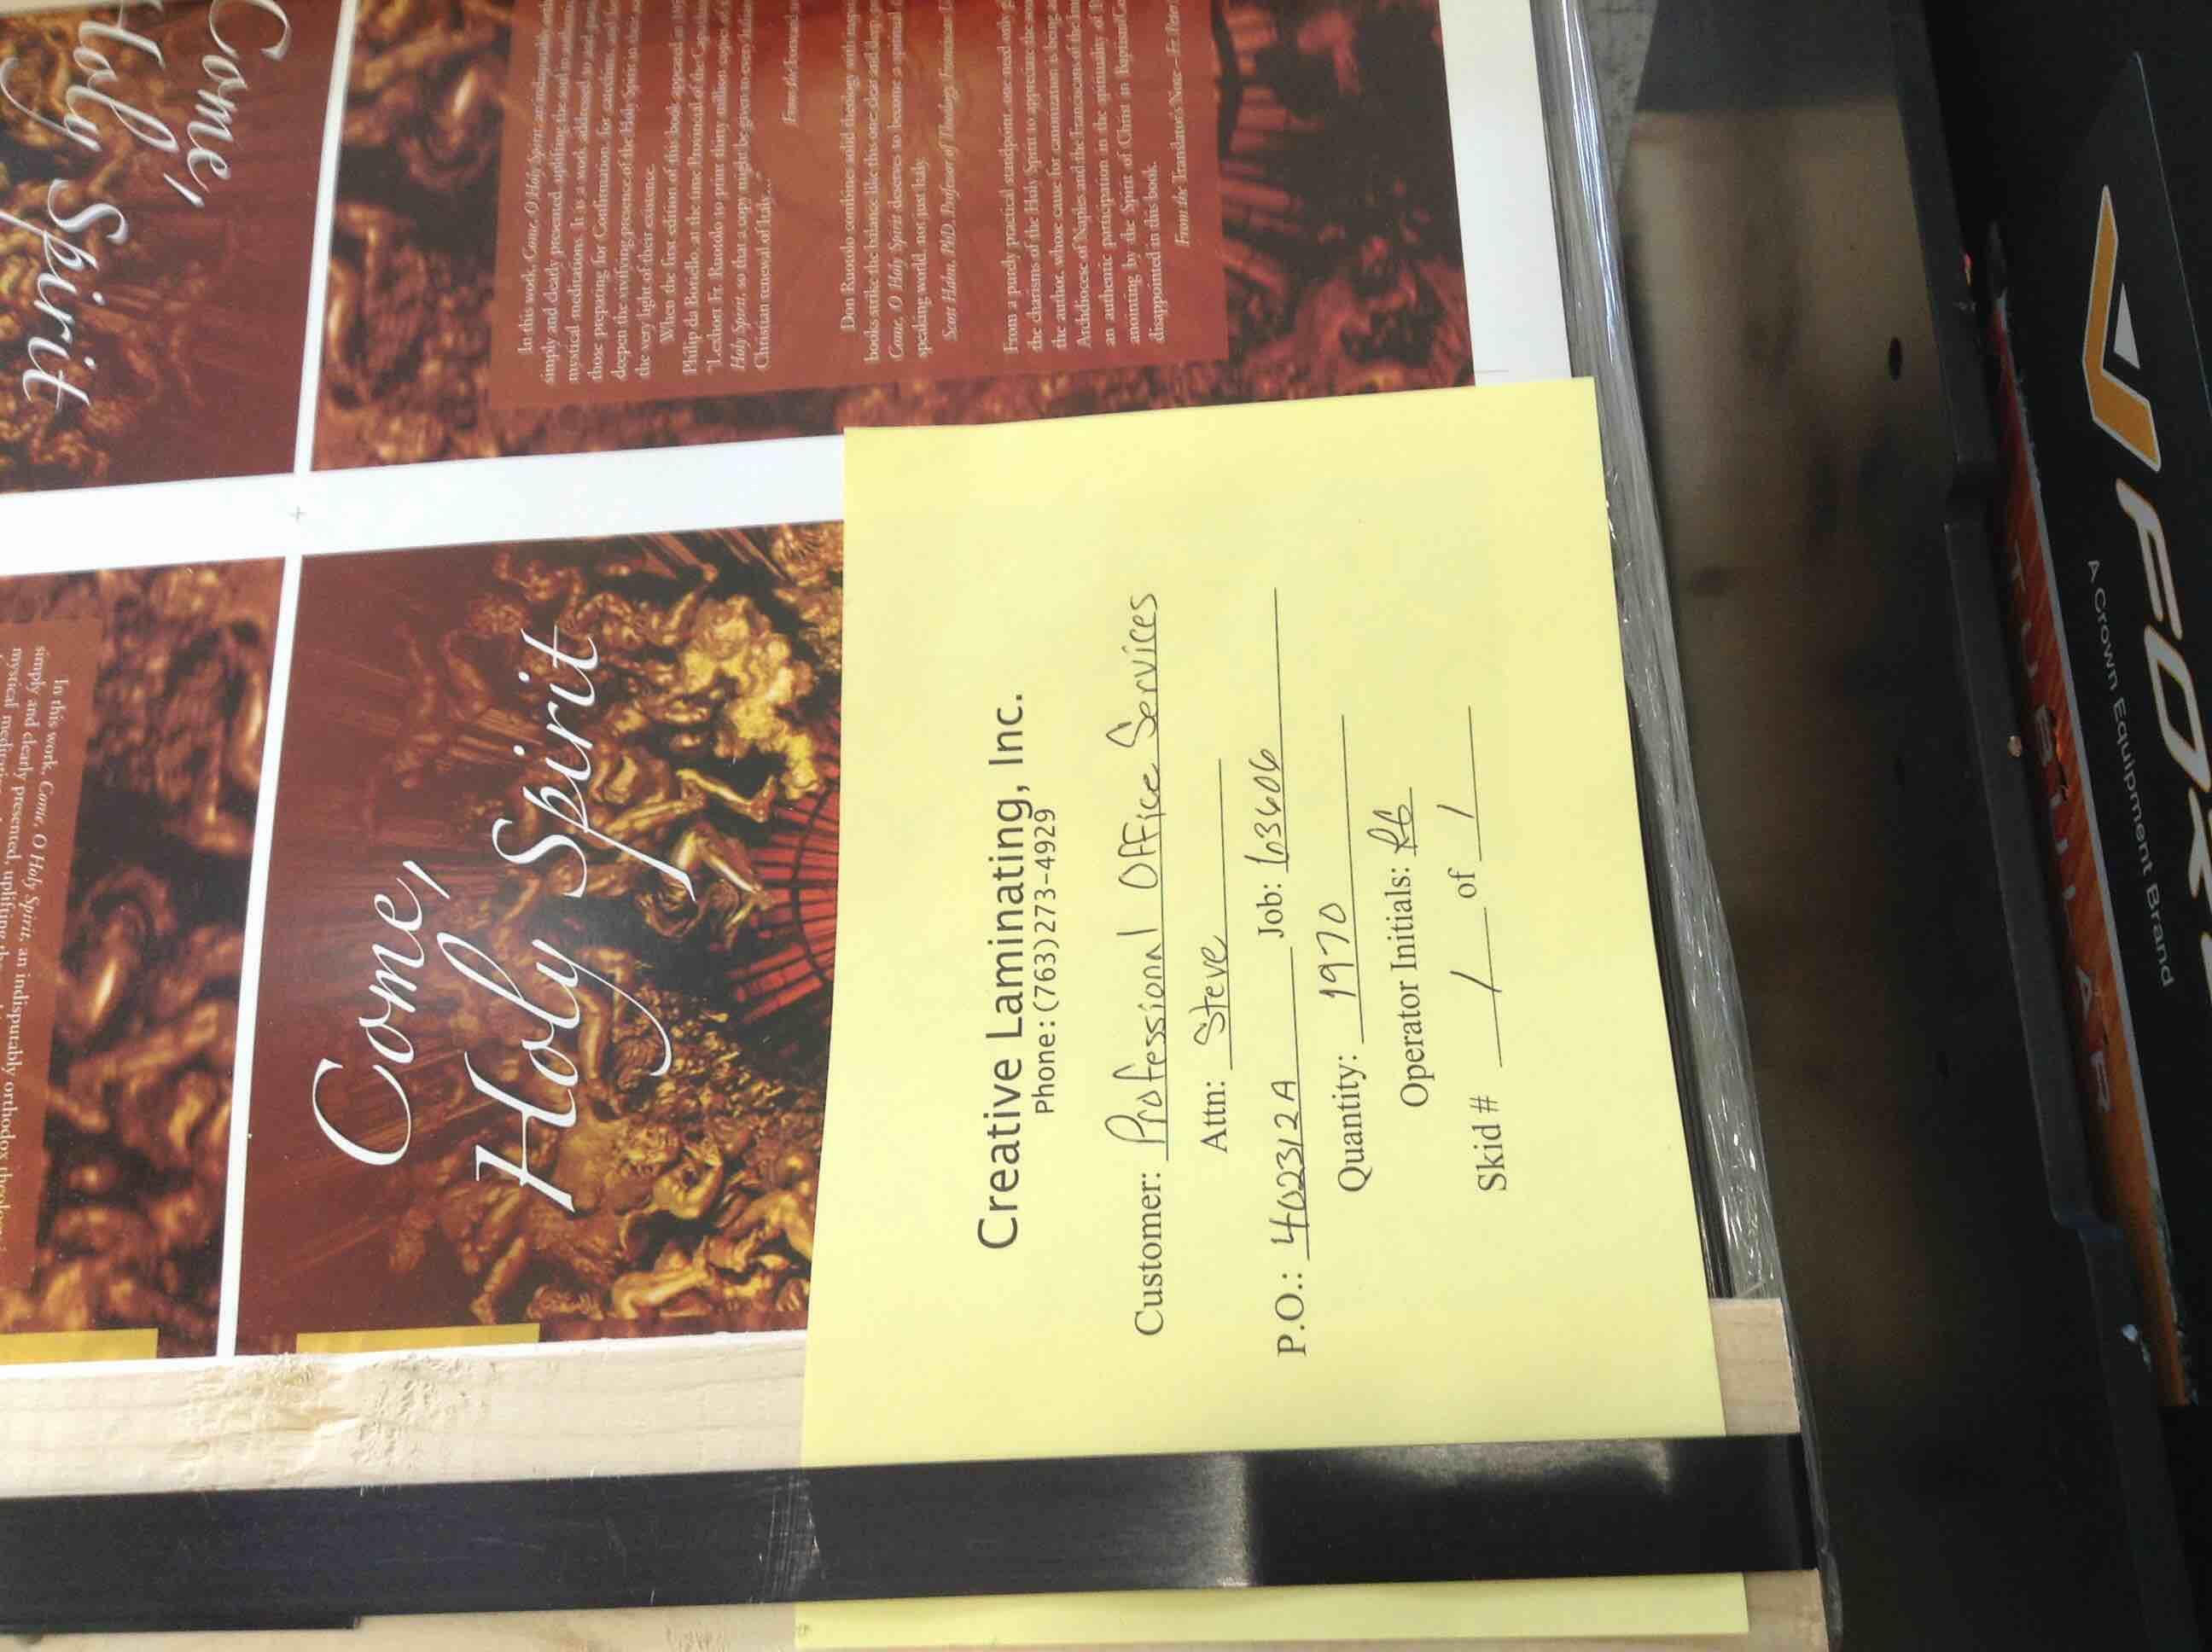 Come,
Holy Spirit
In this work, Come, O Holy Spirit, an indisputably
simply and clearly presented, uplifting the soul
mystical meditations. It is a work addressed to
those preparing for Confirmation, for
deepen the vivifying presence of the Holy Spirit in
the very light of their existence.
When the first edition of this book appeared in
Philip da Baricello, at the time Provincial of the
"I exhort Fr. Ruotolo to print thirty million copies
Holy Spirit, so that a copy might be given to every
Christian renewal of Italy..."
From the
Don Ruotolo combines
books strike the balance like this one clear and
Come, O Holy Spirit deserves to become a spiritual
speaking world, not just Italy.
Scott Hahn, PhD, Professor of Theology, Franciscan
From a purely practical standpoint, one need only
the charisms of the Holy Spirit to appreciate the
the author, whose cause for canonization is being
Archdiocese of Naples and the Franciscans of the
an authentic participation in the spirituality of
anointing by the Spirit of Christ in Baptism/
disappointed in this book.
From the Translator's Note—Fr. Peter
In this work, Come, O Holy Spirit, an indisputably orthodox
simply and clearly presented, uplifting
mystical
Come,
Holy Spirit
Creative Laminating, Inc.
Phone: (763)273-4929
Customer: Professional Office Services
Attn: Steve
P.O.: 402312A Job: 103606
Quantity: 1970
Operator Initials: RB
Skid # 1 of 1
A Crown Equipment Brand
TUBULAR